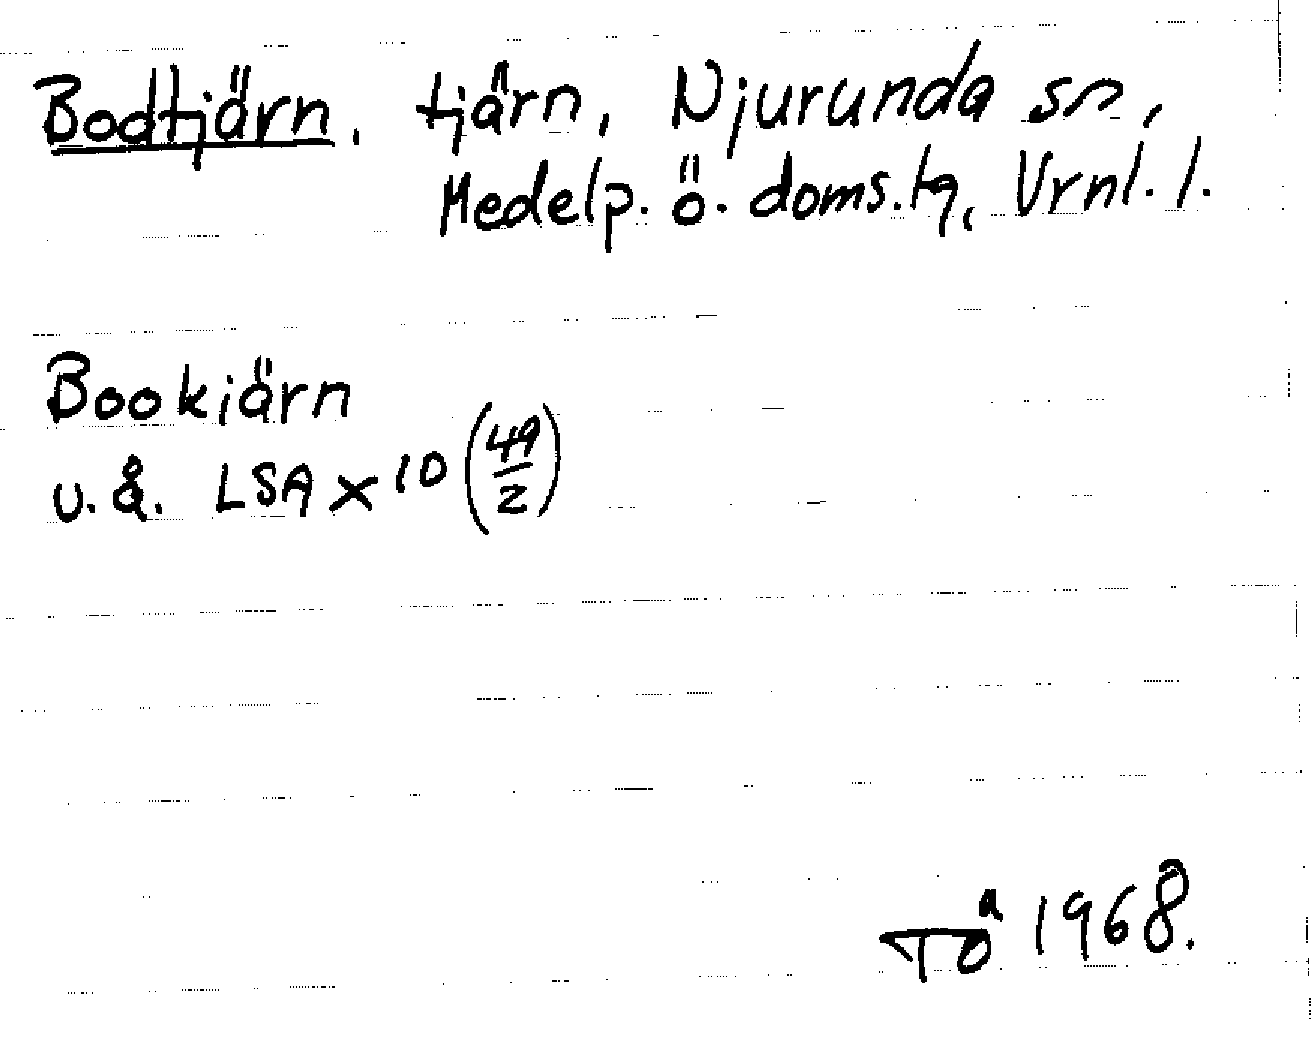 Bodtjärn, tjärn, Njurunda sn,
Medelp. ö. doms.tg, Vrnl. l.
Bookiärn
u.å. LSA X 10 (49/2)
TÖ 1968.